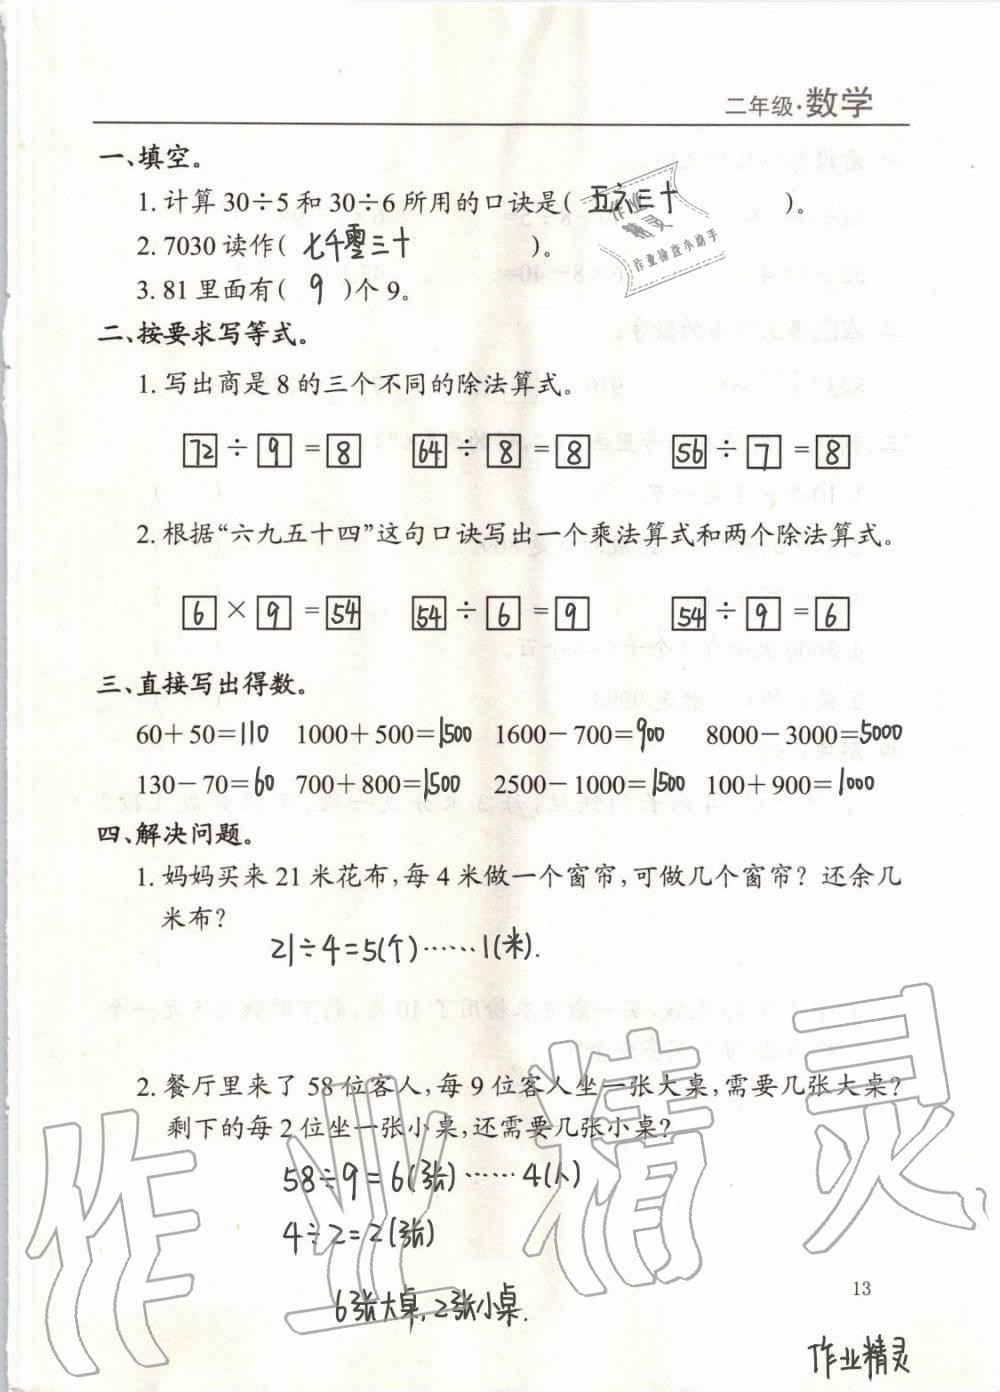 二年级·数学
一、填空。
1. 计算30÷5和30÷6所用的口诀是( 五六三十 )。
2. 7030读作( 七千零三十 )。
3. 81里面有( 9 )个9。
作业
精灵
作业检查小助手
二、按要求写等式。
1. 写出商是8的三个不同的除法算式。
72÷9=8 64÷8=8 56÷7=8
2. 根据“六九五十四”这句口诀写出一个乘法算式和两个除法算式。
6×9=54 54÷6=9 54÷9=6
三、直接写出得数。
60+50=110 1000+500=1500 1600-700=900 8000-3000=5000
130-70=60 700+800=1500 2500-1000=1500 100+900=1000
四、解决问题。
1. 妈妈买来21米花布,每4米做一个窗帘,可做几个窗帘?还余几
米布?
21÷4=5(个)……1(米).
2. 餐厅里来了58位客人,每9位客人坐一张大桌,需要几张大桌?
剩下的每2位坐一张小桌,还需要几张小桌?
58÷9=6(张)……4(人)
4÷2=2(张)
6张大桌,2张小桌.
13
作业精灵
作业精灵